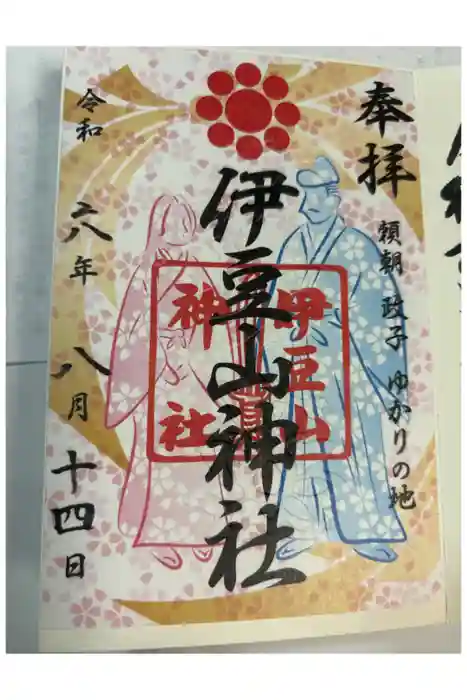 奉拝
頼朝 政子 ゆかりの地
伊豆山神社
伊豆山
神社
令和
六年
八月
十四日